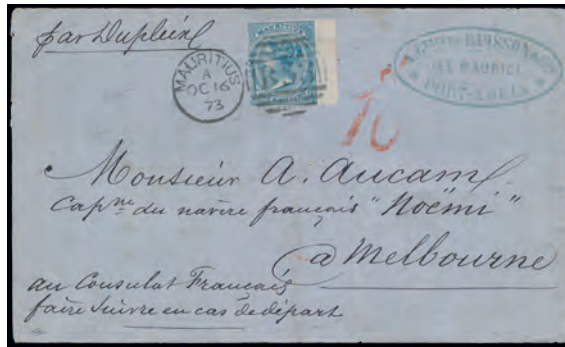 par Dupleix
MAURITIUS
A
OC 16
73
MAURITIUS
B53
BUISSON & Cie
ILE MAURICE
PORT-LOUIS
10
Monsieur A. Aucamf
Capne du navire français "Noëmi"
à Melbourne
au Consulat Français
faire suivre en cas de départ